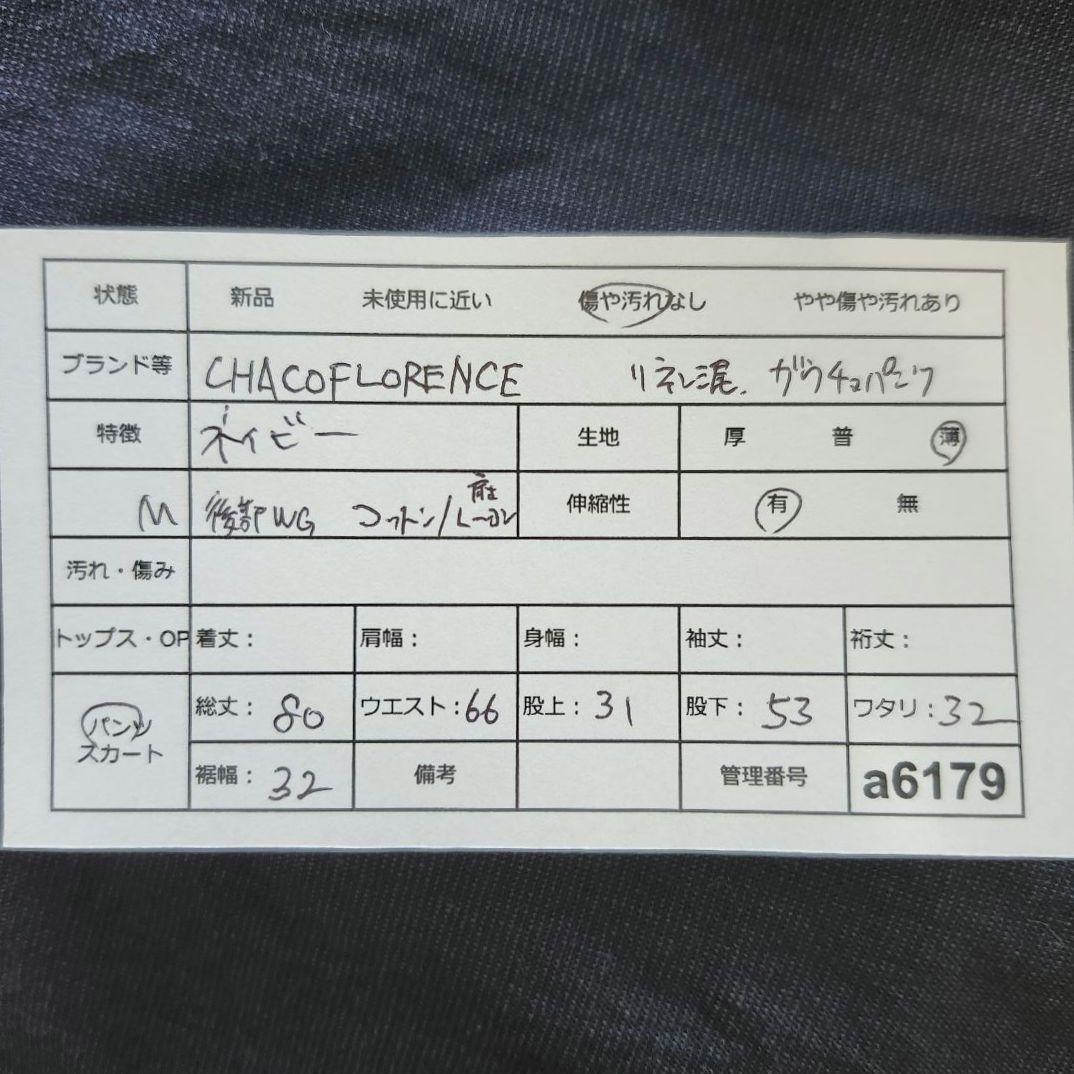 状態 新品 未使用に近い 傷や汚れなし やや傷や汚れあり
ブランド等 CHACOFLORENCE リネン混. ガウチョパンツ
特徴 ネイビー 生地 厚 普 薄
M 後部WG コットン/麻 レーヨン 伸縮性 有 無
汚れ・傷み
トップス・OP 着丈： 肩幅： 身幅： 袖丈： 裄丈：
パンツ 総丈： 80 ウエスト：66 股上：31 股下： 53 ワタリ：32
スカート
裾幅： 32 備考 管理番号 a6179